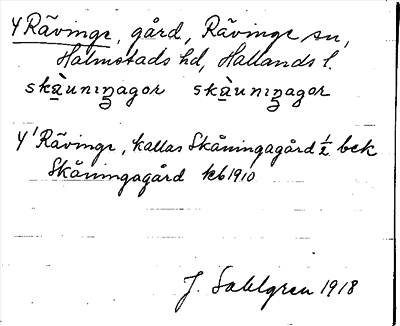 4 Rävinge, gård, Rävinge sn,
Halmstads hd, Hallands l.
skàuniŋagor skauniŋagor
4¹ Rävinge, kallas Skåningagård ½ bek
Skåningagård kb 1910
J. Sahlgren 1918